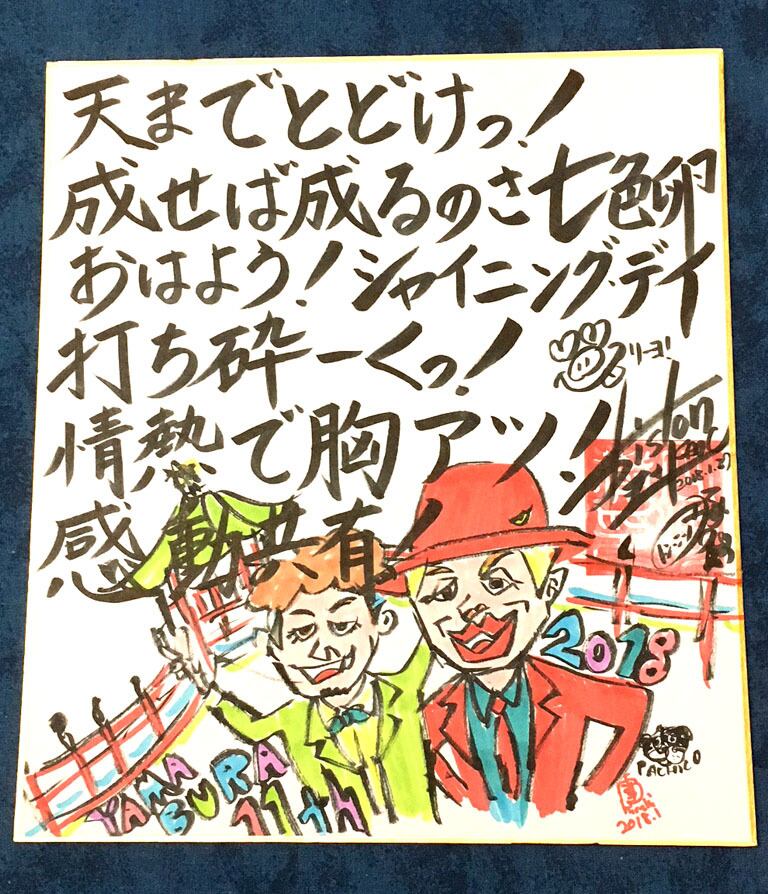 天までとどけっ!
成せば成るのさ七色卵
おはよう!シャイニング・デイ
打ち砕ーくっ!
ブリーヨ!
情熱で胸アツ!
感動共有!
2018.1.27
2018
YAMA
BURA
11th
PACHICO
2018.1